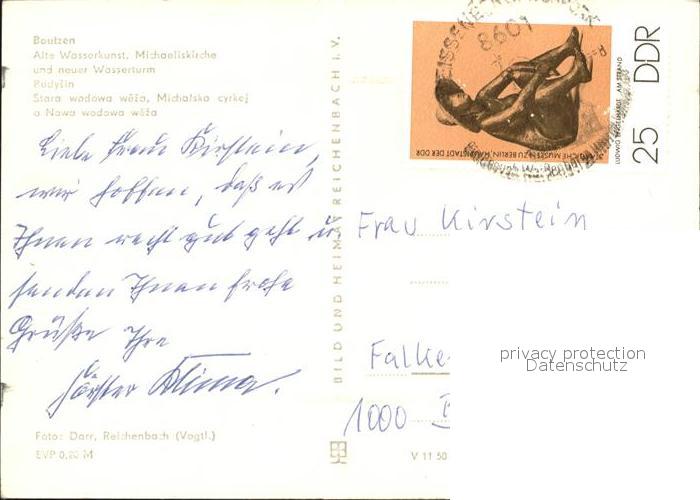 Bautzen
Alte Wasserkunst, Michaeliskirche
und neuer Wasserturm
Budyšin
Stara wodowa wěža, Michalska cyrkej
a Nowa wodowa wěža
Liebe Frau Kirstein,
wir hoffen, daß es
Ihnen recht gut geht u.
senden Ihnen frohe
Grüße Ihre
Foto: Darr, Reichenbach (Vogtl.)
EVP 0,20 M
BILD UND HEIMAT REICHENBACH I. V.
V 11 50
8601
STAATLICHE MUSEEN ZU BERLIN, HAUPTSTADT DER DDR
LUDWIG ENGELHARDT AM STRAND
25 DDR
Frau Kirstein
Falke
1000 B
privacy protection
Datenschutz